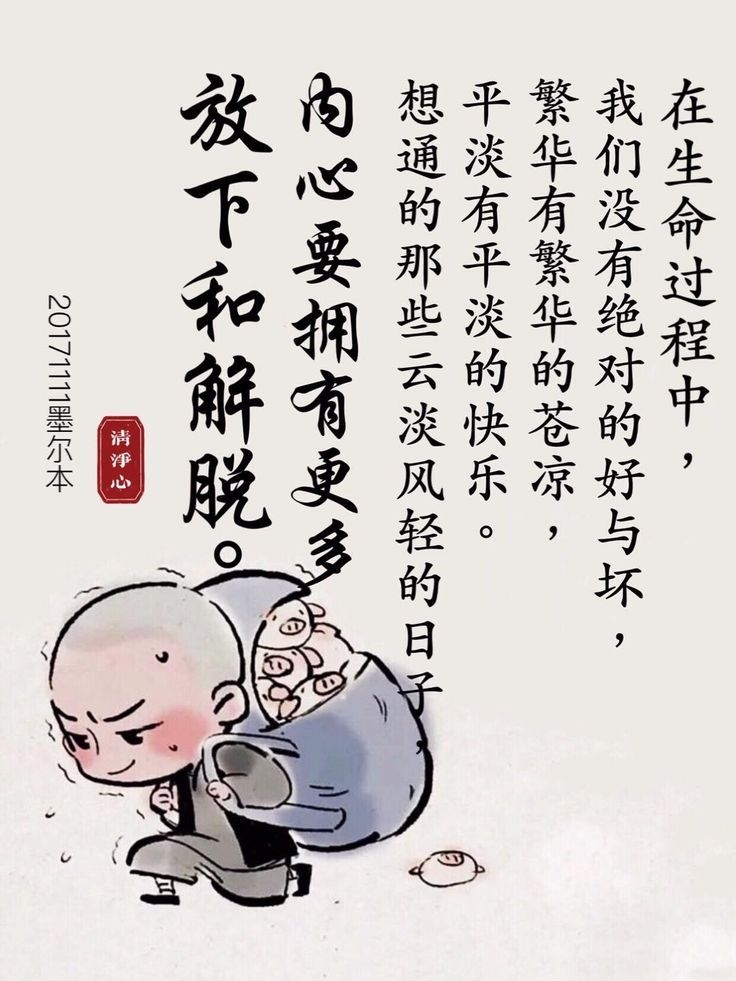 在生命过程中，
我们没有绝对的好与坏，
繁华有繁华的苍凉，
平淡有平淡的快乐。
想通的那些云淡风轻的日子，
内心要拥有更多
放下和解脱。
20171111墨尔本
清淨心